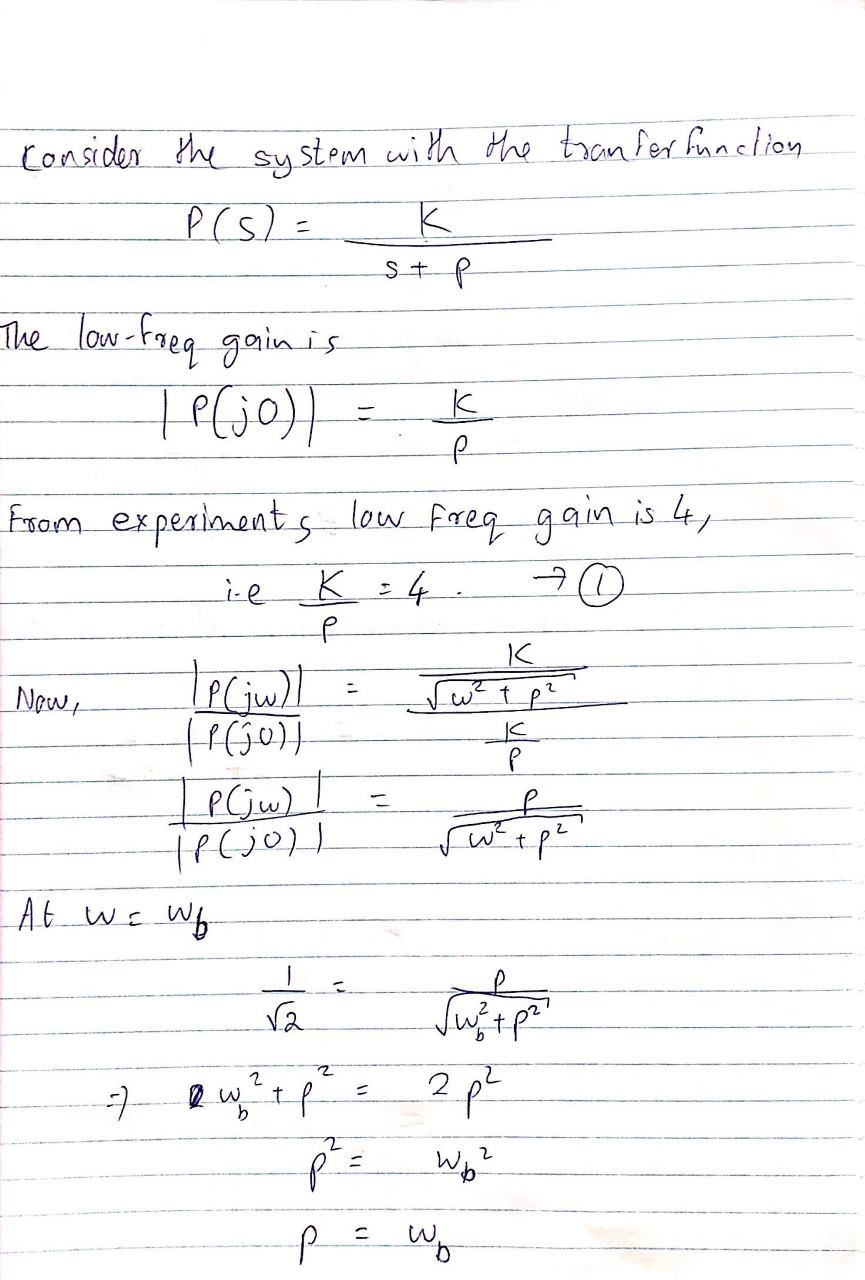 Consider the system with the tranferfunction
P(s) = K / (s + p)
The low-freq gain is
|P(j0)| = K / p
From experiments low freq gain is 4,
i.e K / p = 4 . → ①
Now, |P(jw)| / |P(j0)| = (K / √(w² + p²)) / (K / p)
|P(jw)| / |P(j0)| = p / √(w² + p²)
At w = w_b
1 / √2 = p / √(w_b² + p²)
⇒ w_b² + p² = 2 p²
p² = w_b²
p = w_b